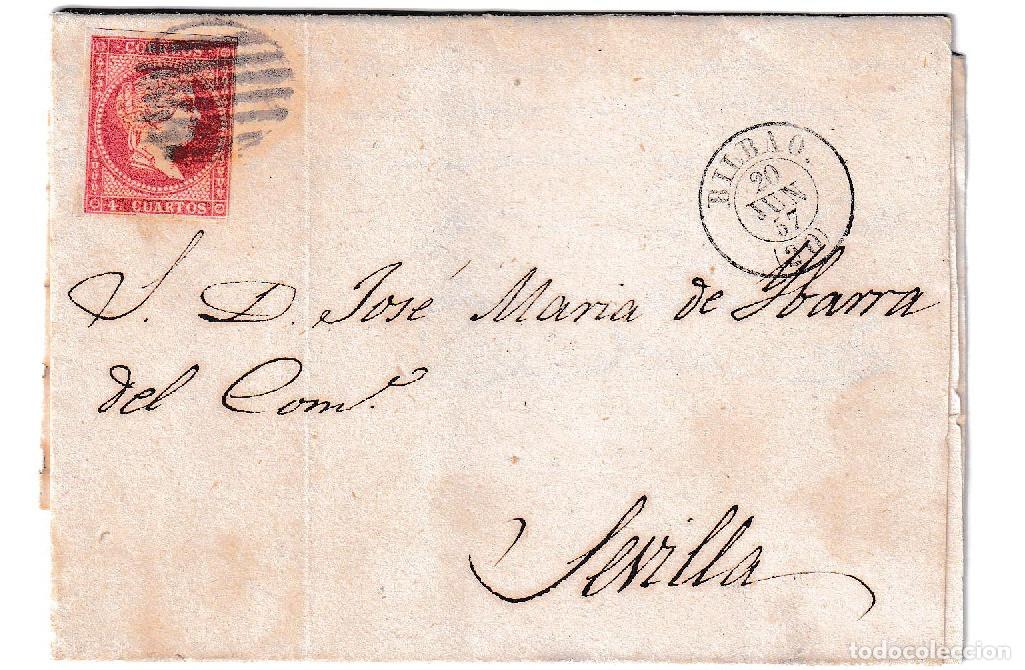 CORREOS
4 CUARTOS
BILBAO.
20
JUN
57
(21)
S. D. José Maria de Ybarra
del Comº.
Sevilla
todocoleccion